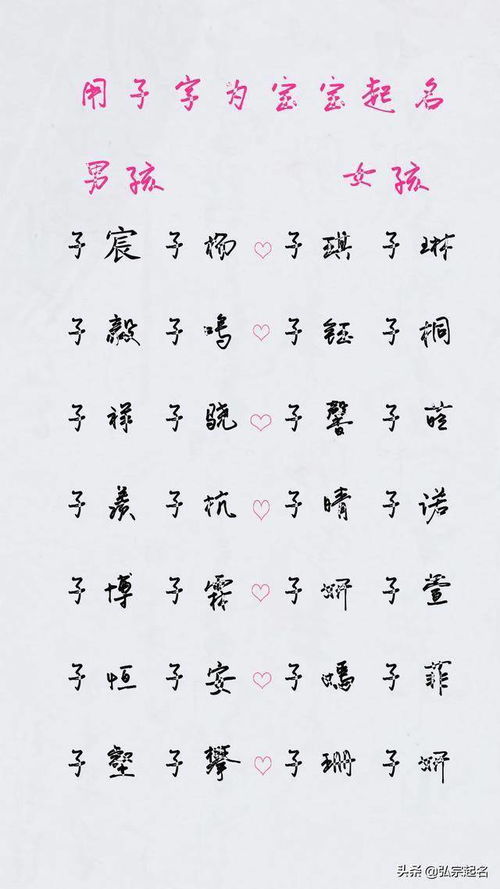 用子字为宝宝起名
男孩 女孩
子宸 子杨 子琪 子琳
子毅 子鸣 子钰 子桐
子禄 子骁 子馨 子萱
子羲 子杭 子晴 子诺
子博 子霖 子妍 子萱
子恒 子安 子嫣 子菲
子壑 子攀 子珊 子妍
头条@弘宗起名